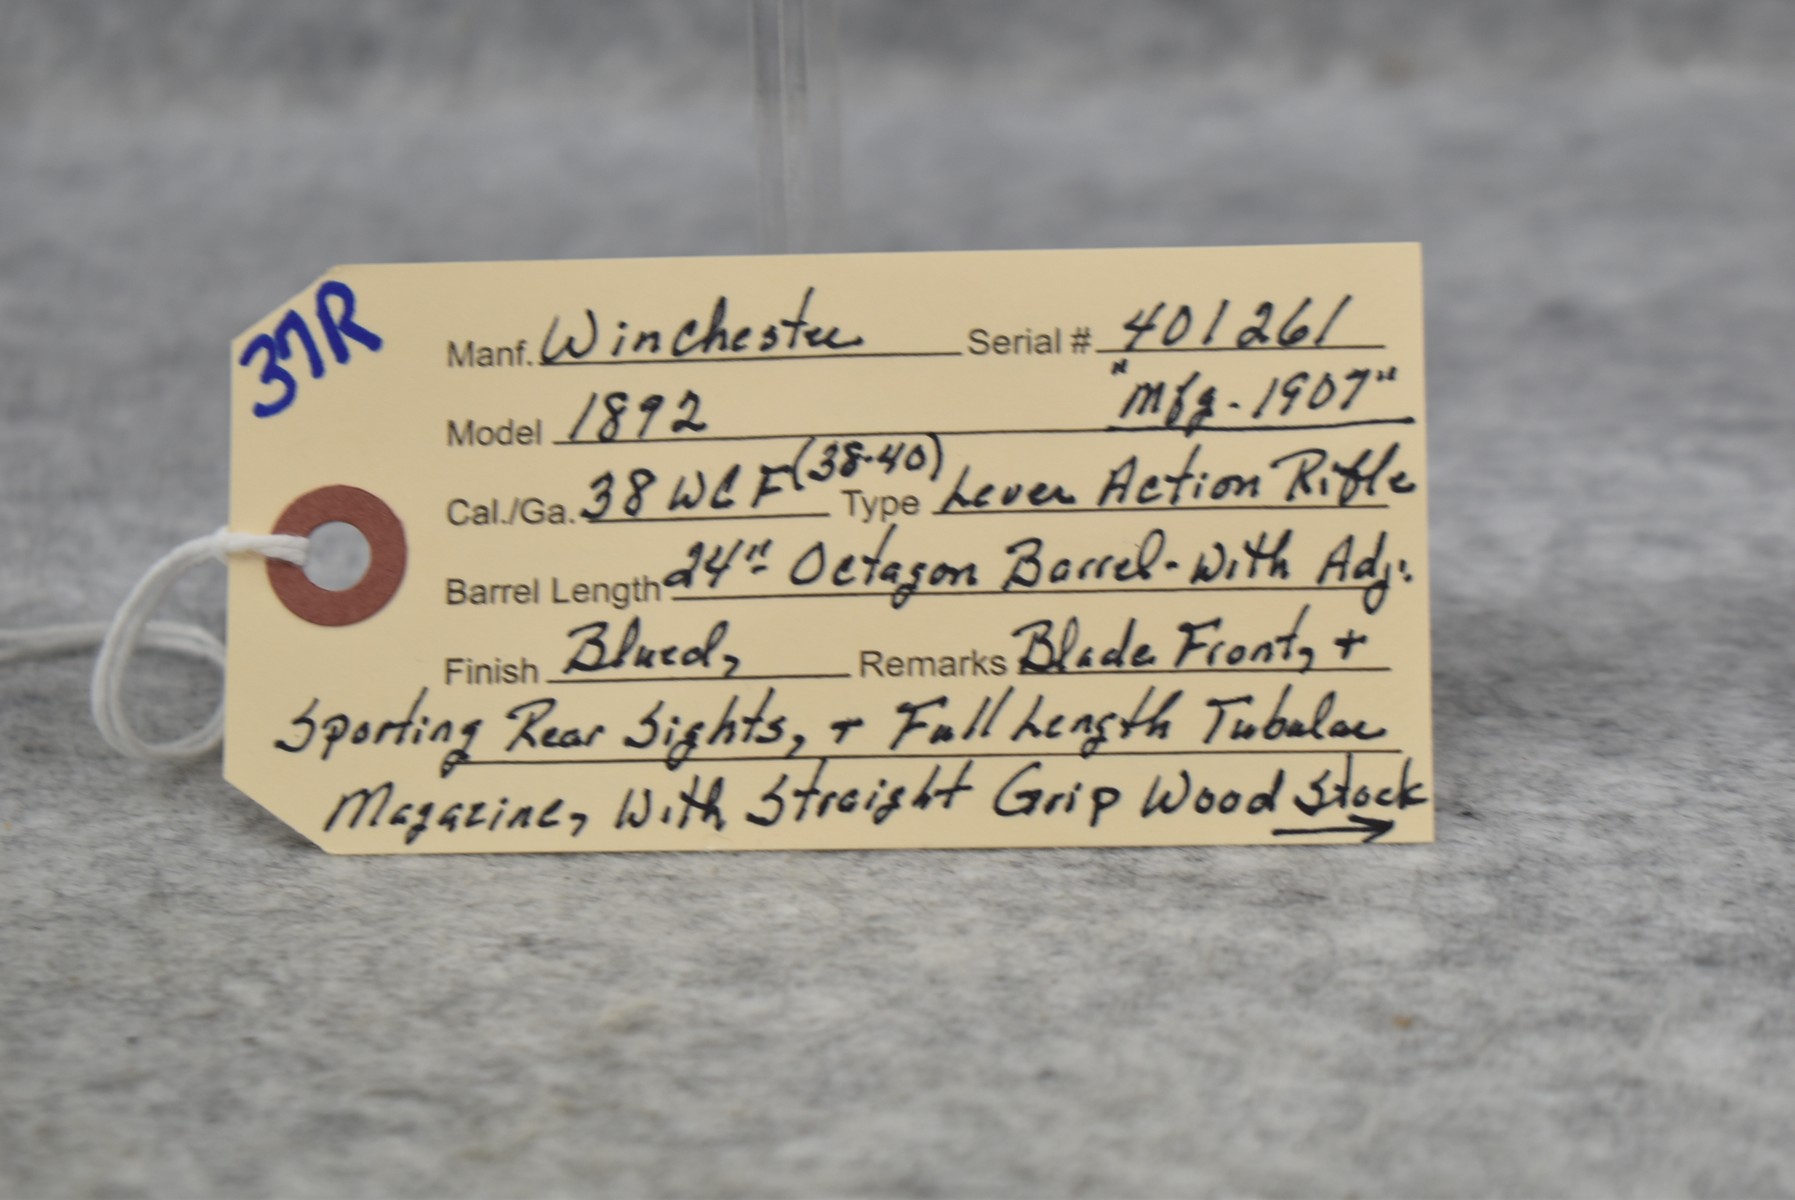 37R
Manf. Winchester Serial # 401261
Model 1892 "Mfg. 1907"
Cal./Ga. 38 WCF (38-40) Type Lever Action Rifle
Barrel Length 24" Octagon Barrel - With Adj.
Finish Blued, Remarks Blade Front, +
Sporting Rear Sights, + Full Length Tubular
Magazine, With Straight Grip Wood Stock →